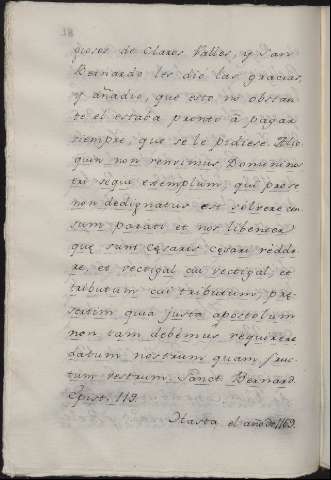 giosos de Clares Valles, y San
Bernardo les dio las gracias,
y añadio, que esto no obstan
te el estaba pronto à pagar
siempre, que se le pidiese. Alio
quin non renuimus Domini nos
tri sequi exemplum, qui pro se
non dedignatus est solvere cen
sum parati et nos libenter
quę sunt Cęsaris cęsari redde
re, et vectigal cui vectigal, et
tributum cui tributum, prę
sertim quia juxta apostolum
non tam debemus requirere
datum nostrum quam fruc
tum vestrum. Sanct. Bernard.
Epist. 119.
Hasta el año de 1169.